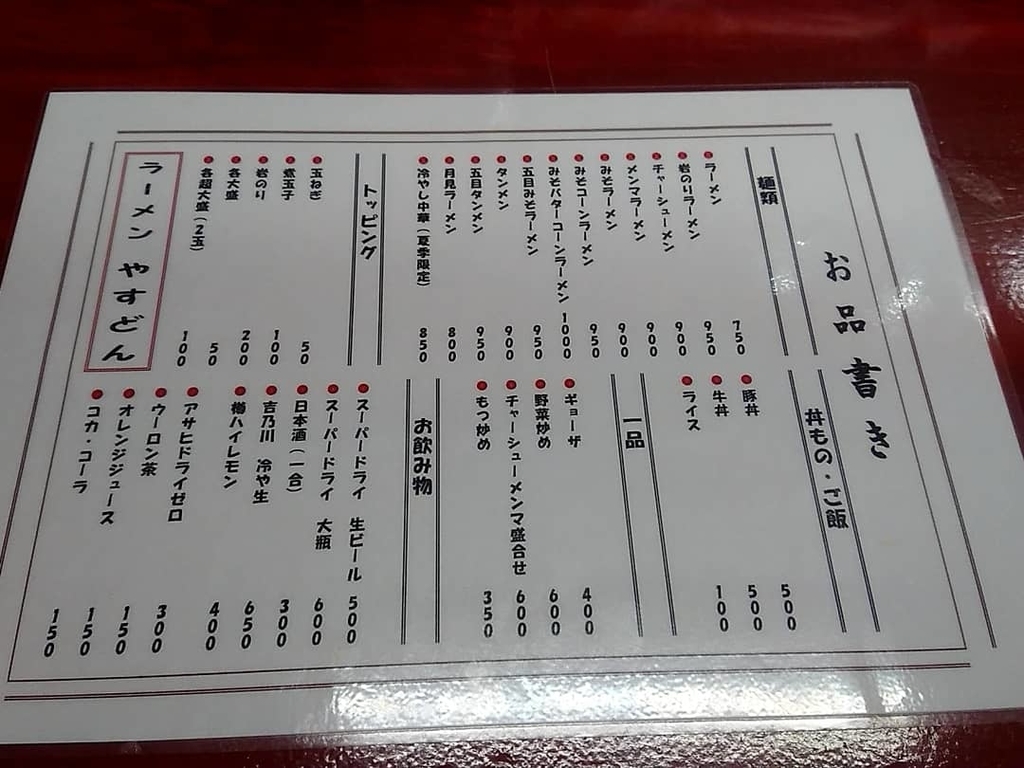 お品書き
麺類
ラーメン 750
岩のりラーメン 950
チャーシューメン 900
メンマラーメン 900
みそラーメン 900
みそコーンラーメン 950
みそバターコーンラーメン 1000
五目みそラーメン 950
タンメン 900
五目タンメン 950
月見ラーメン 800
冷やし中華(夏季限定) 850
トッピング
玉ねぎ 50
煮玉子 100
岩のり 200
各大盛 50
各超大盛(2玉) 100
丼もの・ご飯
豚丼 500
牛丼 500
ライス 100
一品
ギョーザ 400
野菜炒め 600
チャーシューメンマ盛合せ 600
もつ炒め 350
お飲み物
スーパードライ 生ビール 500
スーパードライ 大瓶 600
日本酒(一合) 300
吉乃川 冷や生 650
樽ハイレモン 400
アサヒドライゼロ 300
ウーロン茶 150
オレンジジュース 150
コカ・コーラ 150
ラーメン やすどん